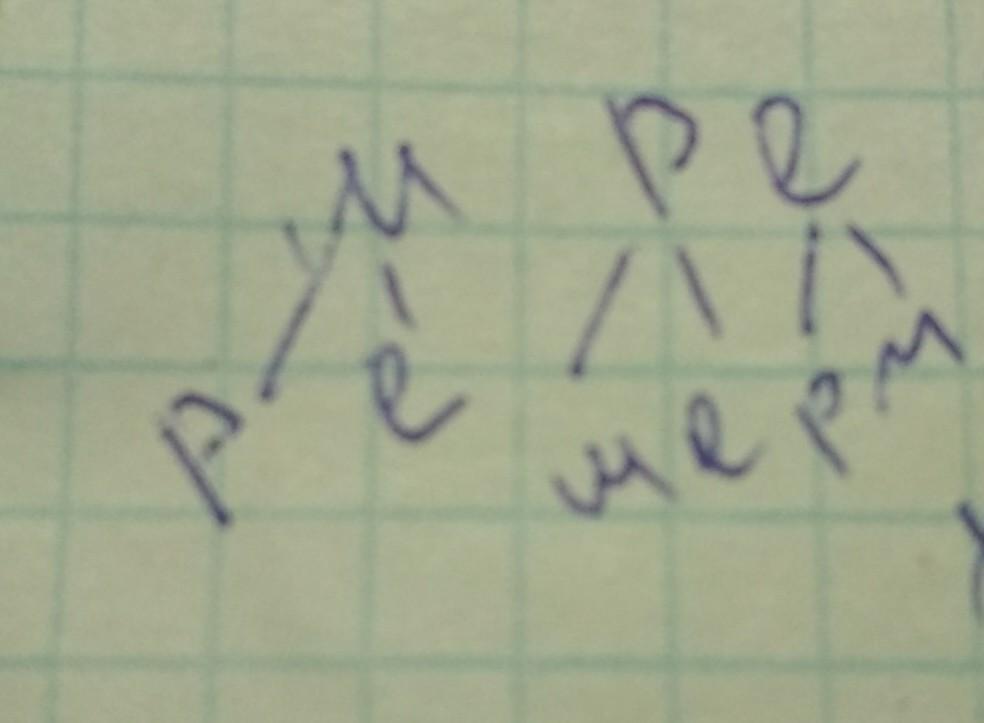 м р е
р е м е р м